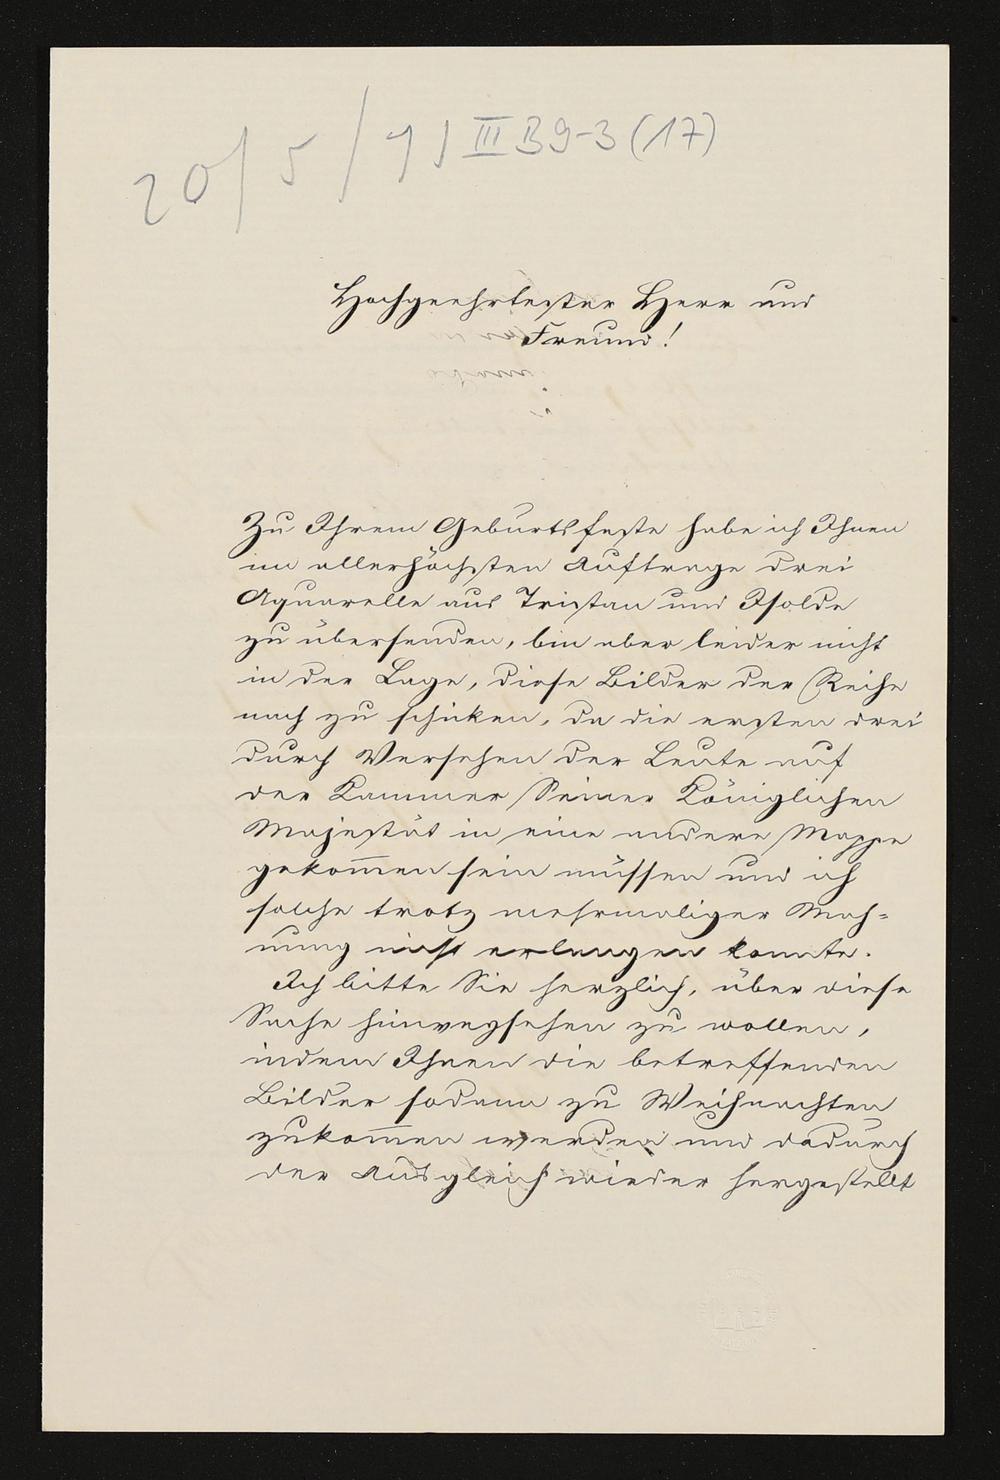 20/5/71 III B 9-3 (17)
Hochgeehrtester Herr und
Freund!
Zu Ihrem Geburtsfeste habe ich Ihnen
im allerhöchsten Auftrage drei
Aquarelle aus Tristan und Isolde
zu übersenden, bin aber leider nicht
in der Lage, diese Bilder der Reihe
nach zu schicken, da die ersten drei
durch Versehen der Leute auf
der Kammer Seiner Königlichen
Majestät in eine andere Mappe
gekom̅en sein müssen und ich
solche trotz mehrmaliger Mah-
nung nicht erlangen konnte.
Ich bitte Sie herzlich, über diese
Sache hinwegsehen zu wollen,
indem Ihnen die betreffenden
Bilder sodann zu Weihnachten
zukom̅en werden und dadurch
der Ausgleich wieder hergestellt